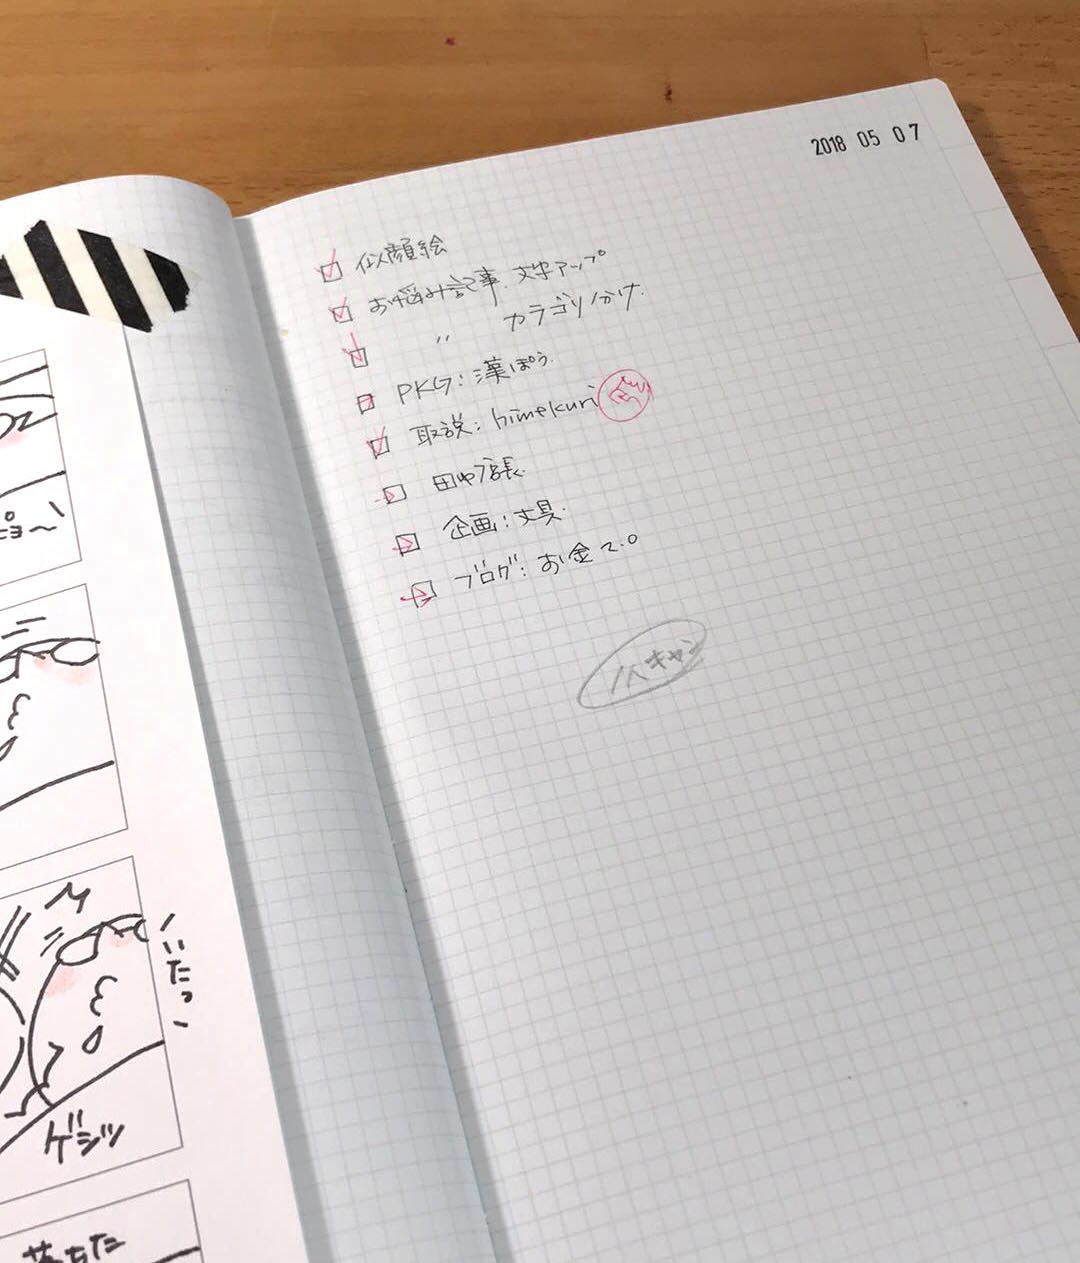 2018 05 07
似顔絵
お悩み記事. 文字アップ
〃 カテゴリ分け.
PKG: 漢ぽう.
取説: himekuri
田中店長.
企画: 文具.
ブログ: お金2.0
いたっ
ゲシッ
落ちた